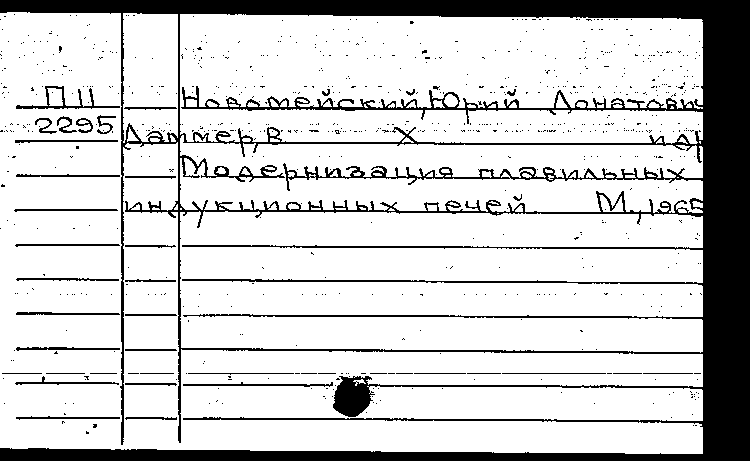 П 11 Новомейский, Юрий Донатович
2295 Даттер, В Х и др
Модернизация плавильных
индукционных печей М., 1965